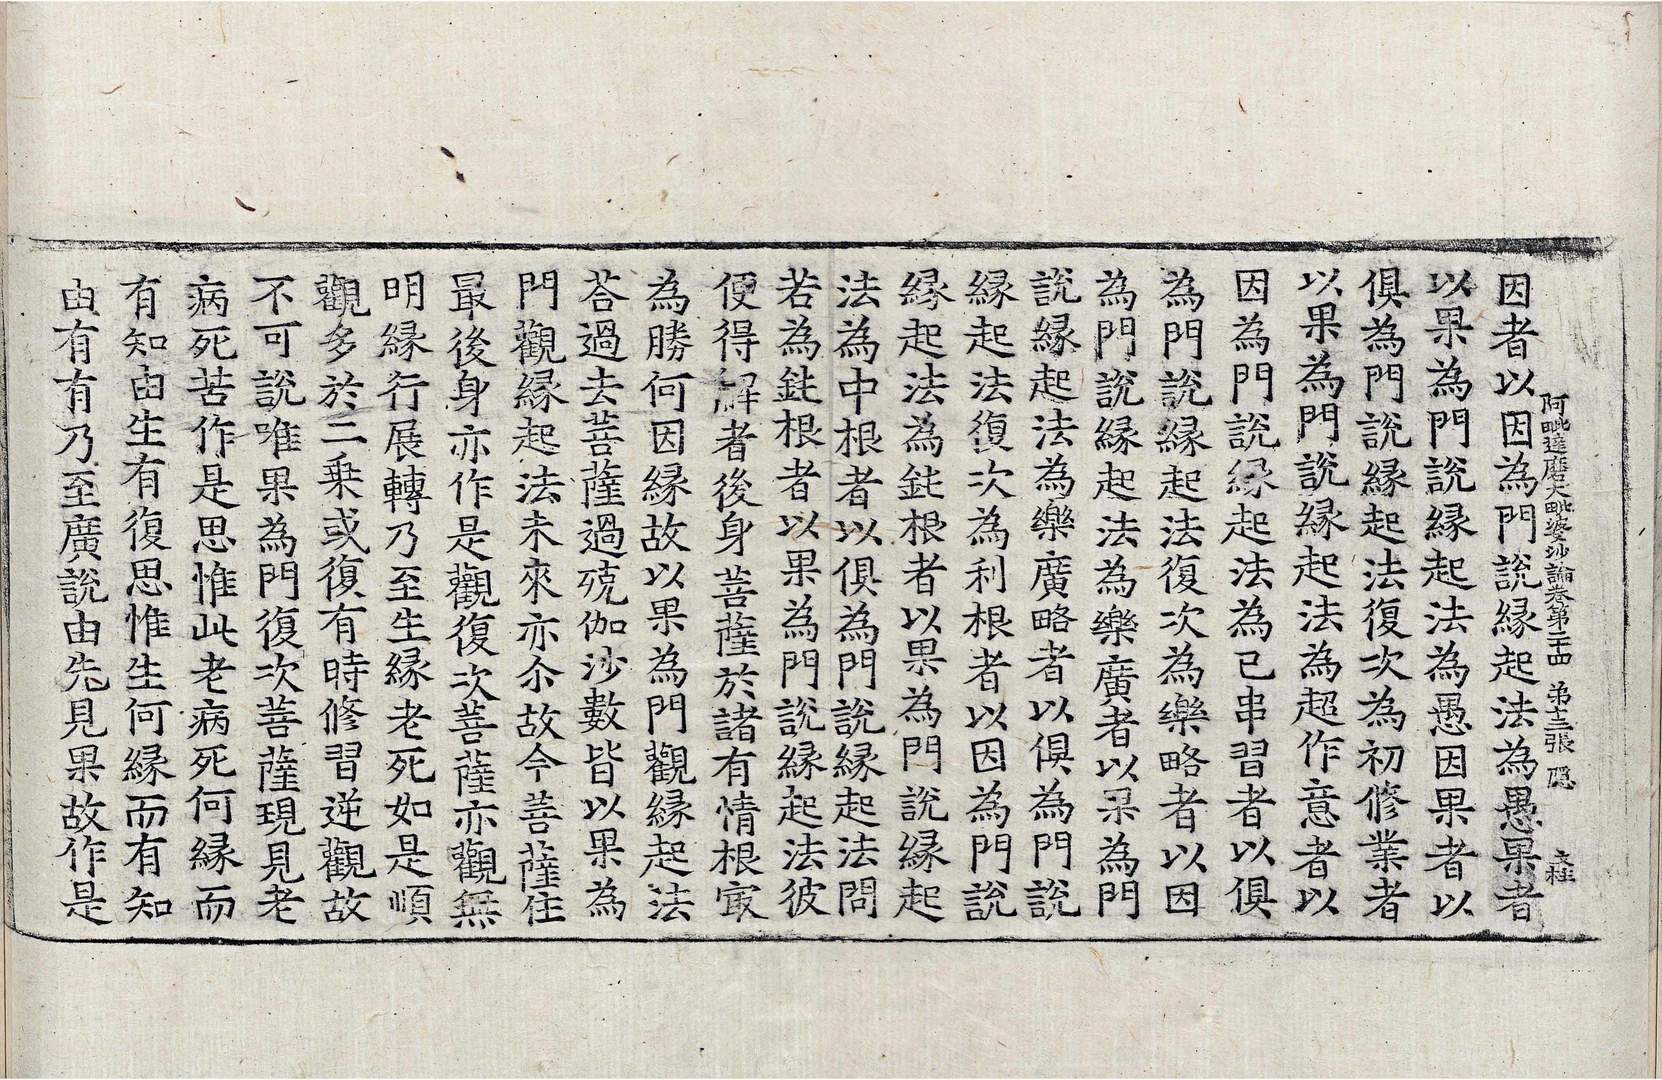 阿毗達磨大毗婆沙論卷第二十四 第十三張 隱
因者以因為門說緣起法為愚果者
以果為門說緣起法為愚因果者以
俱為門說緣起法復次為初修業者
以果為門說緣起法為超作意者以
因為門說緣起法為已串習者以俱
為門說緣起法復次為樂略者以因
為門說緣起法為樂廣者以果為門
說緣起法為樂廣略者以俱為門說
緣起法復次為利根者以因為門說
緣起法為鈍根者以果為門說緣起
法為中根者以俱為門說緣起法問
若為鈍根者以果為門說緣起法彼
便得解者後身菩薩於諸有情根㝡
為勝何因緣故以果為門觀緣起法
荅過去菩薩過殑伽沙數皆以果為
門觀緣起法未來亦尒故今菩薩住
最後身亦作是觀復次菩薩亦觀無
明緣行展轉乃至生緣老死如是順
觀多於二乘或復有時修習逆觀故
不可說唯果為門復次菩薩現見老
病死苦作是思惟此老病死何緣而
有知由生有復思惟生何緣而有知
由有有乃至廣說由先見果故作是